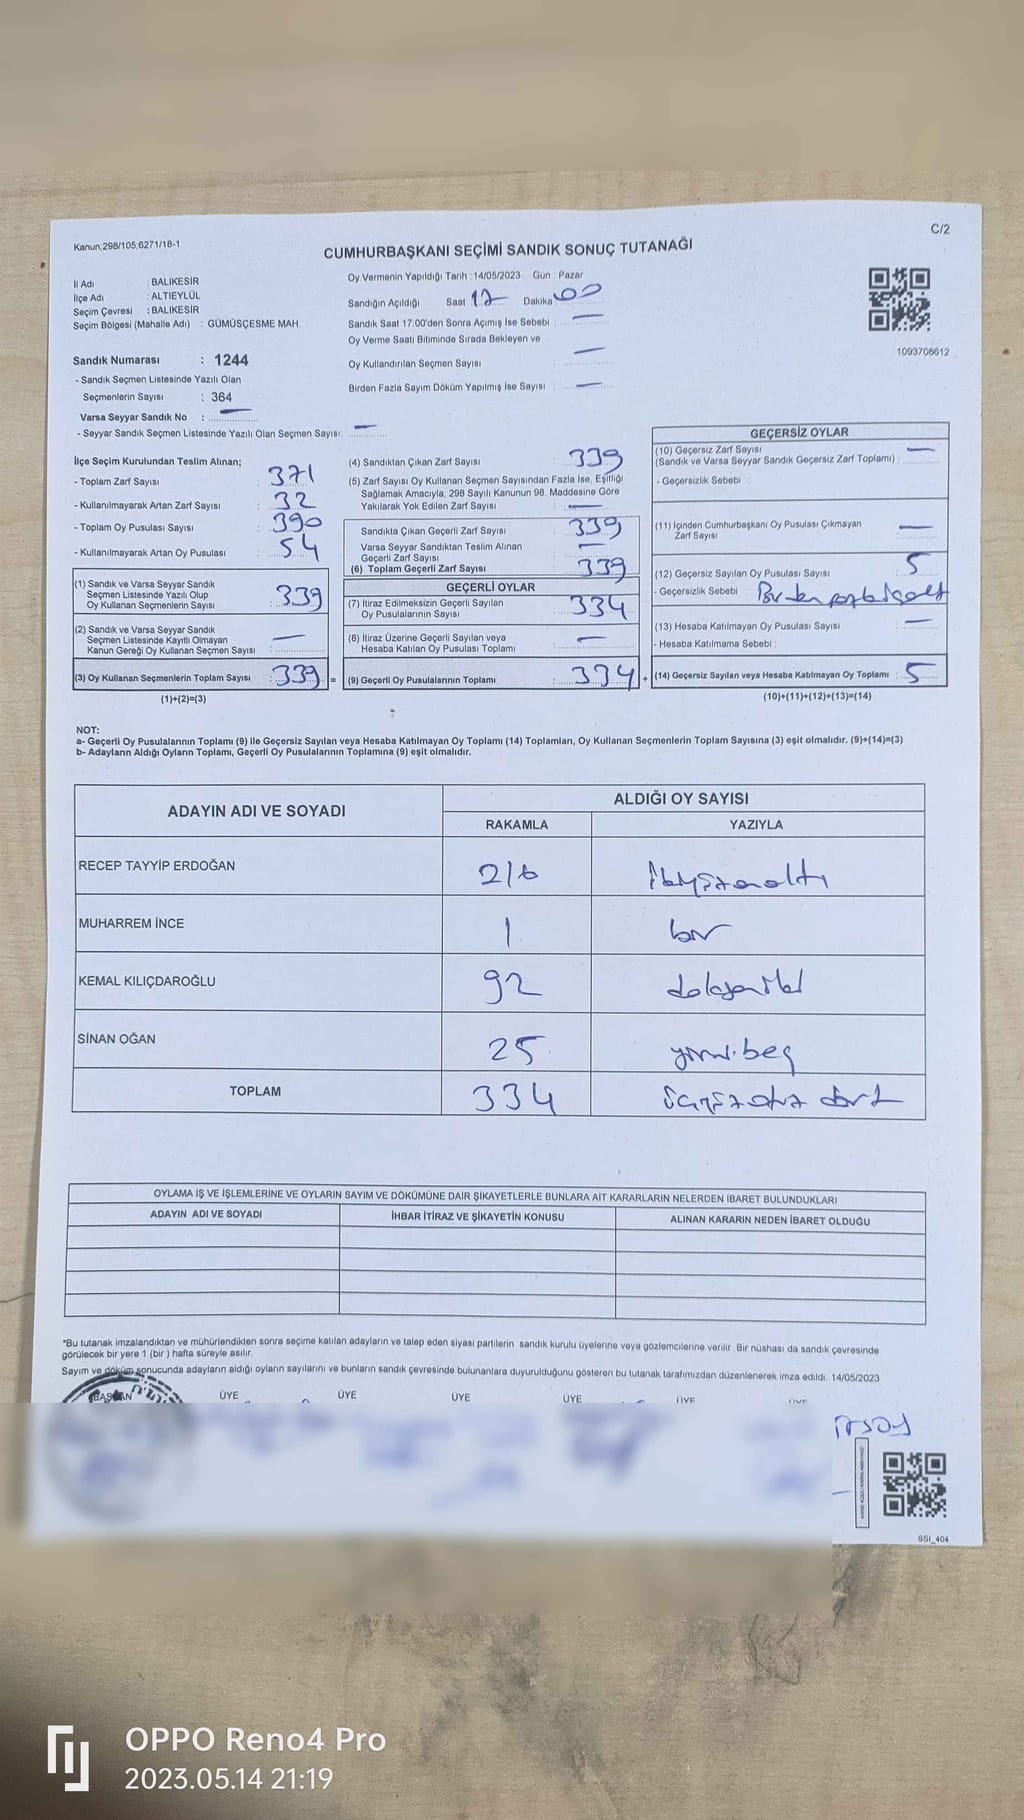 Kanun;298/105,6271/18-1
C/2
CUMHURBAŞKANI SEÇİMİ SANDIK SONUÇ TUTANAĞI
İl Adı : BALIKESİR
İlçe Adı : ALTIEYLÜL
Seçim Çevresi : BALIKESİR
Seçim Bölgesi (Mahalle Adı) : GÜMÜŞÇEŞME MAH.
Oy Vermenin Yapıldığı Tarih : 14/05/2023 Gün : Pazar
Sandığın Açıldığı Saat 17 Dakika 00
Sandık Saat 17:00'den Sonra Açımış İse Sebebi : —
Oy Verme Saati Bitiminde Sırada Bekleyen ve
Oy Kullandırılan Seçmen Sayısı : —
Birden Fazla Sayım Döküm Yapılmış İse Sayısı : —
1093708612
Sandık Numarası : 1244
- Sandık Seçmen Listesinde Yazılı Olan
Seçmenlerin Sayısı : 364
Varsa Seyyar Sandık No : —
- Seyyar Sandık Seçmen Listesinde Yazılı Olan Seçmen Sayısı: —
İlçe Seçim Kurulundan Teslim Alınan;
- Toplam Zarf Sayısı : 371
- Kullanılmayarak Artan Zarf Sayısı : 32
- Toplam Oy Pusulası Sayısı : 390
- Kullanılmayarak Artan Oy Pusulası : 54
(1) Sandık ve Varsa Seyyar Sandık
Seçmen Listesinde Yazılı Olup
Oy Kullanan Seçmenlerin Sayısı : 339
(2) Sandık ve Varsa Seyyar Sandık
Seçmen Listesinde Kayıtlı Olmayan
Kanun Gereği Oy Kullanan Seçmen Sayısı : —
(3) Oy Kullanan Seçmenlerin Toplam Sayısı : 339 =
(1)+(2)=(3)
(4) Sandıktan Çıkan Zarf Sayısı : 339
(5) Zarf Sayısı Oy Kullanan Seçmen Sayısından Fazla İse, Eşitliği
Sağlamak Amacıyla; 298 Sayılı Kanunun 98. Maddesine Göre
Yakılarak Yok Edilen Zarf Sayısı : —
Sandıkta Çıkan Geçerli Zarf Sayısı : 339
Varsa Seyyar Sandıktan Teslim Alınan
Geçerli Zarf Sayısı : —
(6) Toplam Geçerli Zarf Sayısı : 339
GEÇERLİ OYLAR
(7) İtiraz Edilmeksizin Geçerli Sayılan
Oy Pusulalarının Sayısı : 334
(8) İtiraz Üzerine Geçerli Sayılan veya
Hesaba Katılan Oy Pusulası Toplamı : —
(9) Geçerli Oy Pusulalarının Toplamı : 334 +
GEÇERSİZ OYLAR
(10) Geçersiz Zarf Sayısı
(Sandık ve Varsa Seyyar Sandık Geçersiz Zarf Toplamı) : —
- Geçersizlik Sebebi :
(11) İçinden Cumhurbaşkanı Oy Pusulası Çıkmayan
Zarf Sayısı : —
(12) Geçersiz Sayılan Oy Pusulası Sayısı : 5
- Geçersizlik Sebebi :
(13) Hesaba Katılmayan Oy Pusulası Sayısı : —
- Hesaba Katılmama Sebebi :
(14) Geçersiz Sayılan veya Hesaba Katılmayan Oy Toplamı : 5
(10)+(11)+(12)+(13)=(14)
NOT:
a- Geçerli Oy Pusulalarının Toplamı (9) ile Geçersiz Sayılan veya Hesaba Katılmayan Oy Toplamı (14) Toplamları, Oy Kullanan Seçmenlerin Toplam Sayısına (3) eşit olmalıdır. (9)+(14)=(3)
b- Adayların Aldığı Oyların Toplamı, Geçerli Oy Pusulalarının Toplamına (9) eşit olmalıdır.
ADAYIN ADI VE SOYADI
ALDIĞI OY SAYISI
RAKAMLA YAZIYLA
RECEP TAYYİP ERDOĞAN 216 ikiyüzonaltı
MUHARREM İNCE 1 bir
KEMAL KILIÇDAROĞLU 92 doksaniki
SİNAN OĞAN 25 yirmibeş
TOPLAM 334 üçyüzotuz dört
OYLAMA İŞ VE İŞLEMLERİNE VE OYLARIN SAYIM VE DÖKÜMÜNE DAİR ŞİKAYETLERLE BUNLARA AİT KARARLARIN NELERDEN İBARET BULUNDUKLARI
ADAYIN ADI VE SOYADI İHBAR İTİRAZ VE ŞİKAYETİN KONUSU ALINAN KARARIN NEDEN İBARET OLDUĞU
*Bu tutanak imzalandıktan ve mühürlendikten sonra seçime katılan adayların ve talep eden siyasi partilerin sandık kurulu üyelerine veya gözlemcilerine verilir. Bir nüshası da sandık çevresinde
görülecek bir yere 1 (bir ) hafta süreyle asılır.
Sayım ve döküm sonucunda adayların aldığı oyların sayılarını ve bunların sandık çevresinde bulunanlara duyurulduğunu gösteren bu tutanak tarafımızdan düzenlenerek imza edildi. 14/05/2023
BAŞKAN ÜYE ÜYE ÜYE ÜYE ÜYE
SSI_404
OPPO Reno4 Pro
2023.05.14 21:19